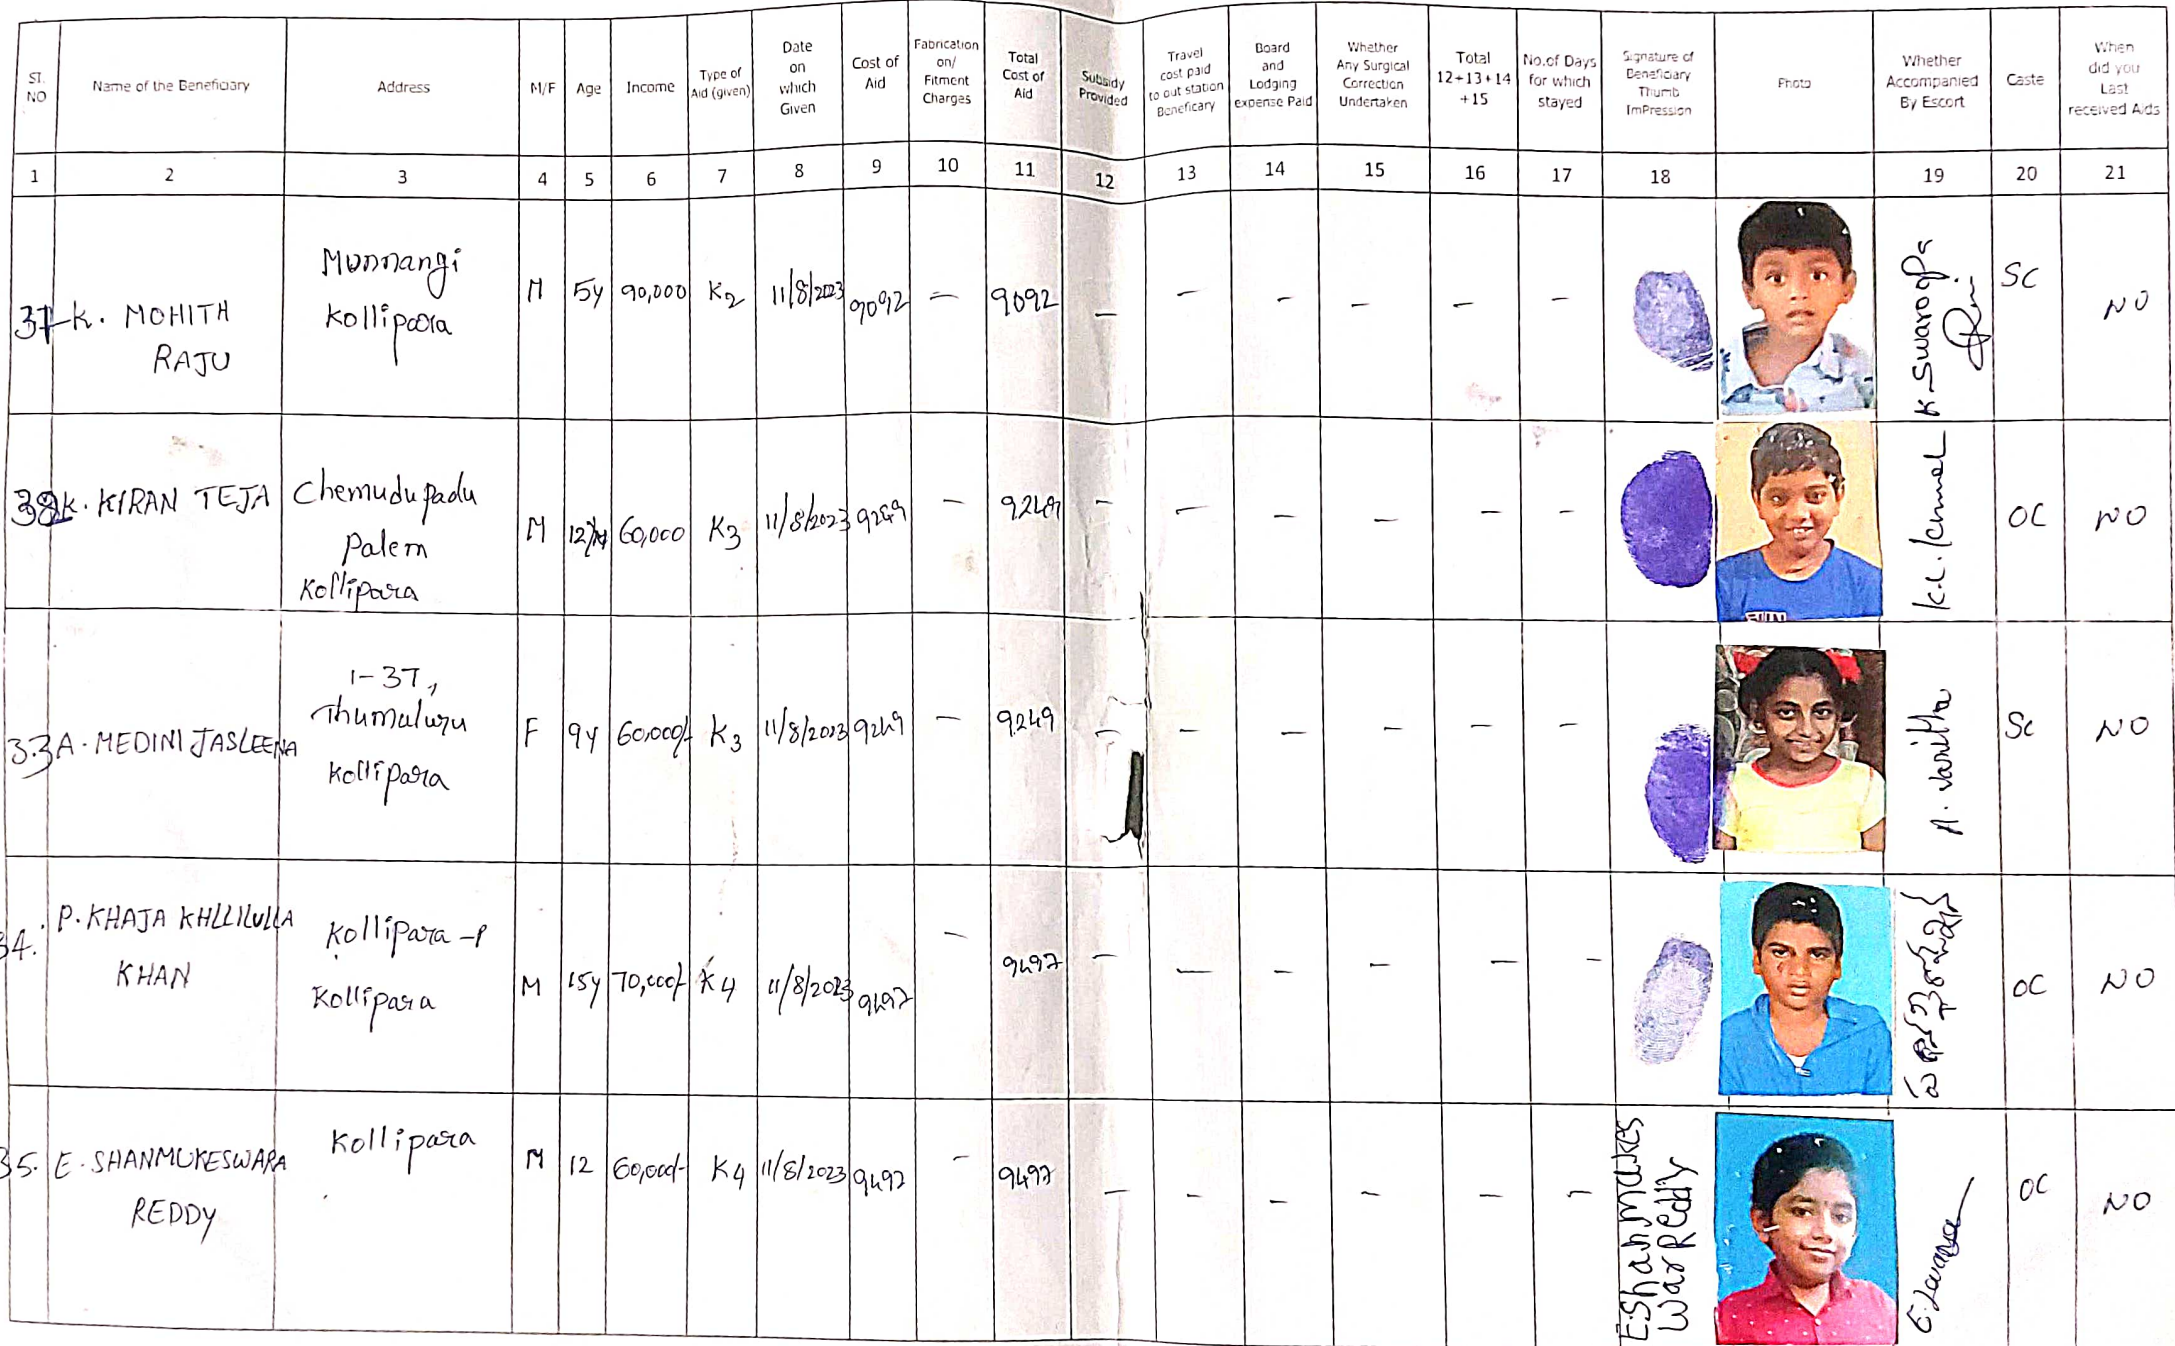 ST. NO
Name of the Beneficiary
Address
M/F
Age
Income
Type of Aid (given)
Date on which Given
Cost of Aid
Fabrication on/ Fitment Charges
Total Cost of Aid
Subsidy Provided
Travel cost paid to out station Beneficary
Board and Lodging expense Paid
Whether Any Surgical Correction Undertaken
Total 12+13+14 +15
No.of Days for which stayed
Signature of Beneficiary Thumb ImPression
Photo
Whether Accompanied By Escort
Caste
When did you Last received Aids
1 2 3 4 5 6 7 8 9 10 11 12 13 14 15 16 17 18 19 20 21
K. MOHITH RAJU
Munnangi
Kollipara
M 5y 90,000 K2 11/8/2023 9092 – 9092 – – – – – –
K. Swaroopa
SC
NO
K. KIRAN TEJA
Chemudupadu
Palem
Kollipara
M 12 60,000 K3 11/8/2023 9249 – 9249 – – – – – –
OC
NO
33 A. MEDINI JASLEENA
1-37,
Thumuluru
Kollipara
F 9y 60,000/- K3 11/8/2023 9249 – 9249 – – – – – –
A. Vanitha
SC
NO
34. P. KHAJA KHLLILULLA
KHAN
Kollipara -P
Kollipara
M 15y 70,000/- K4 11/8/2023 9497 – 9497 – – – – – –
OC
NO
35. E. SHANMUKESWARA
REDDY
Kollipara
M 12 60,000/- K4 11/8/2023 9497 – 9497 – – – – – –
E. Shanmukes
War Reddy
OC
NO